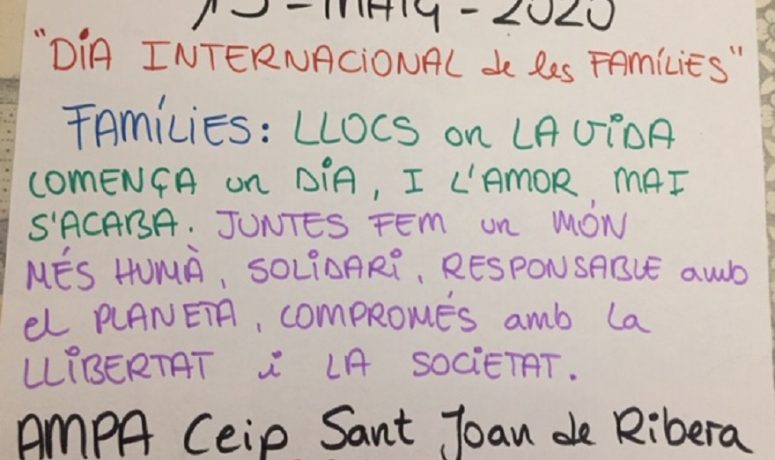 15-MAIG-2020
"DÍA INTERNACIONAL de les FAMÍLIES"
FAMÍLIES: LLOCS on LA VIDA
COMENÇA un DIA, I L'AMOR, MAI
S'ACABA. JUNTES FEM un MÓN
MÉS HUMÀ, SOLIDARI, RESPONSABLE amb
el PLANETA, COMPROMÉS amb la
LLIBERTAT i LA SOCIETAT.
AMPA Ceip Sant Joan de Ribera